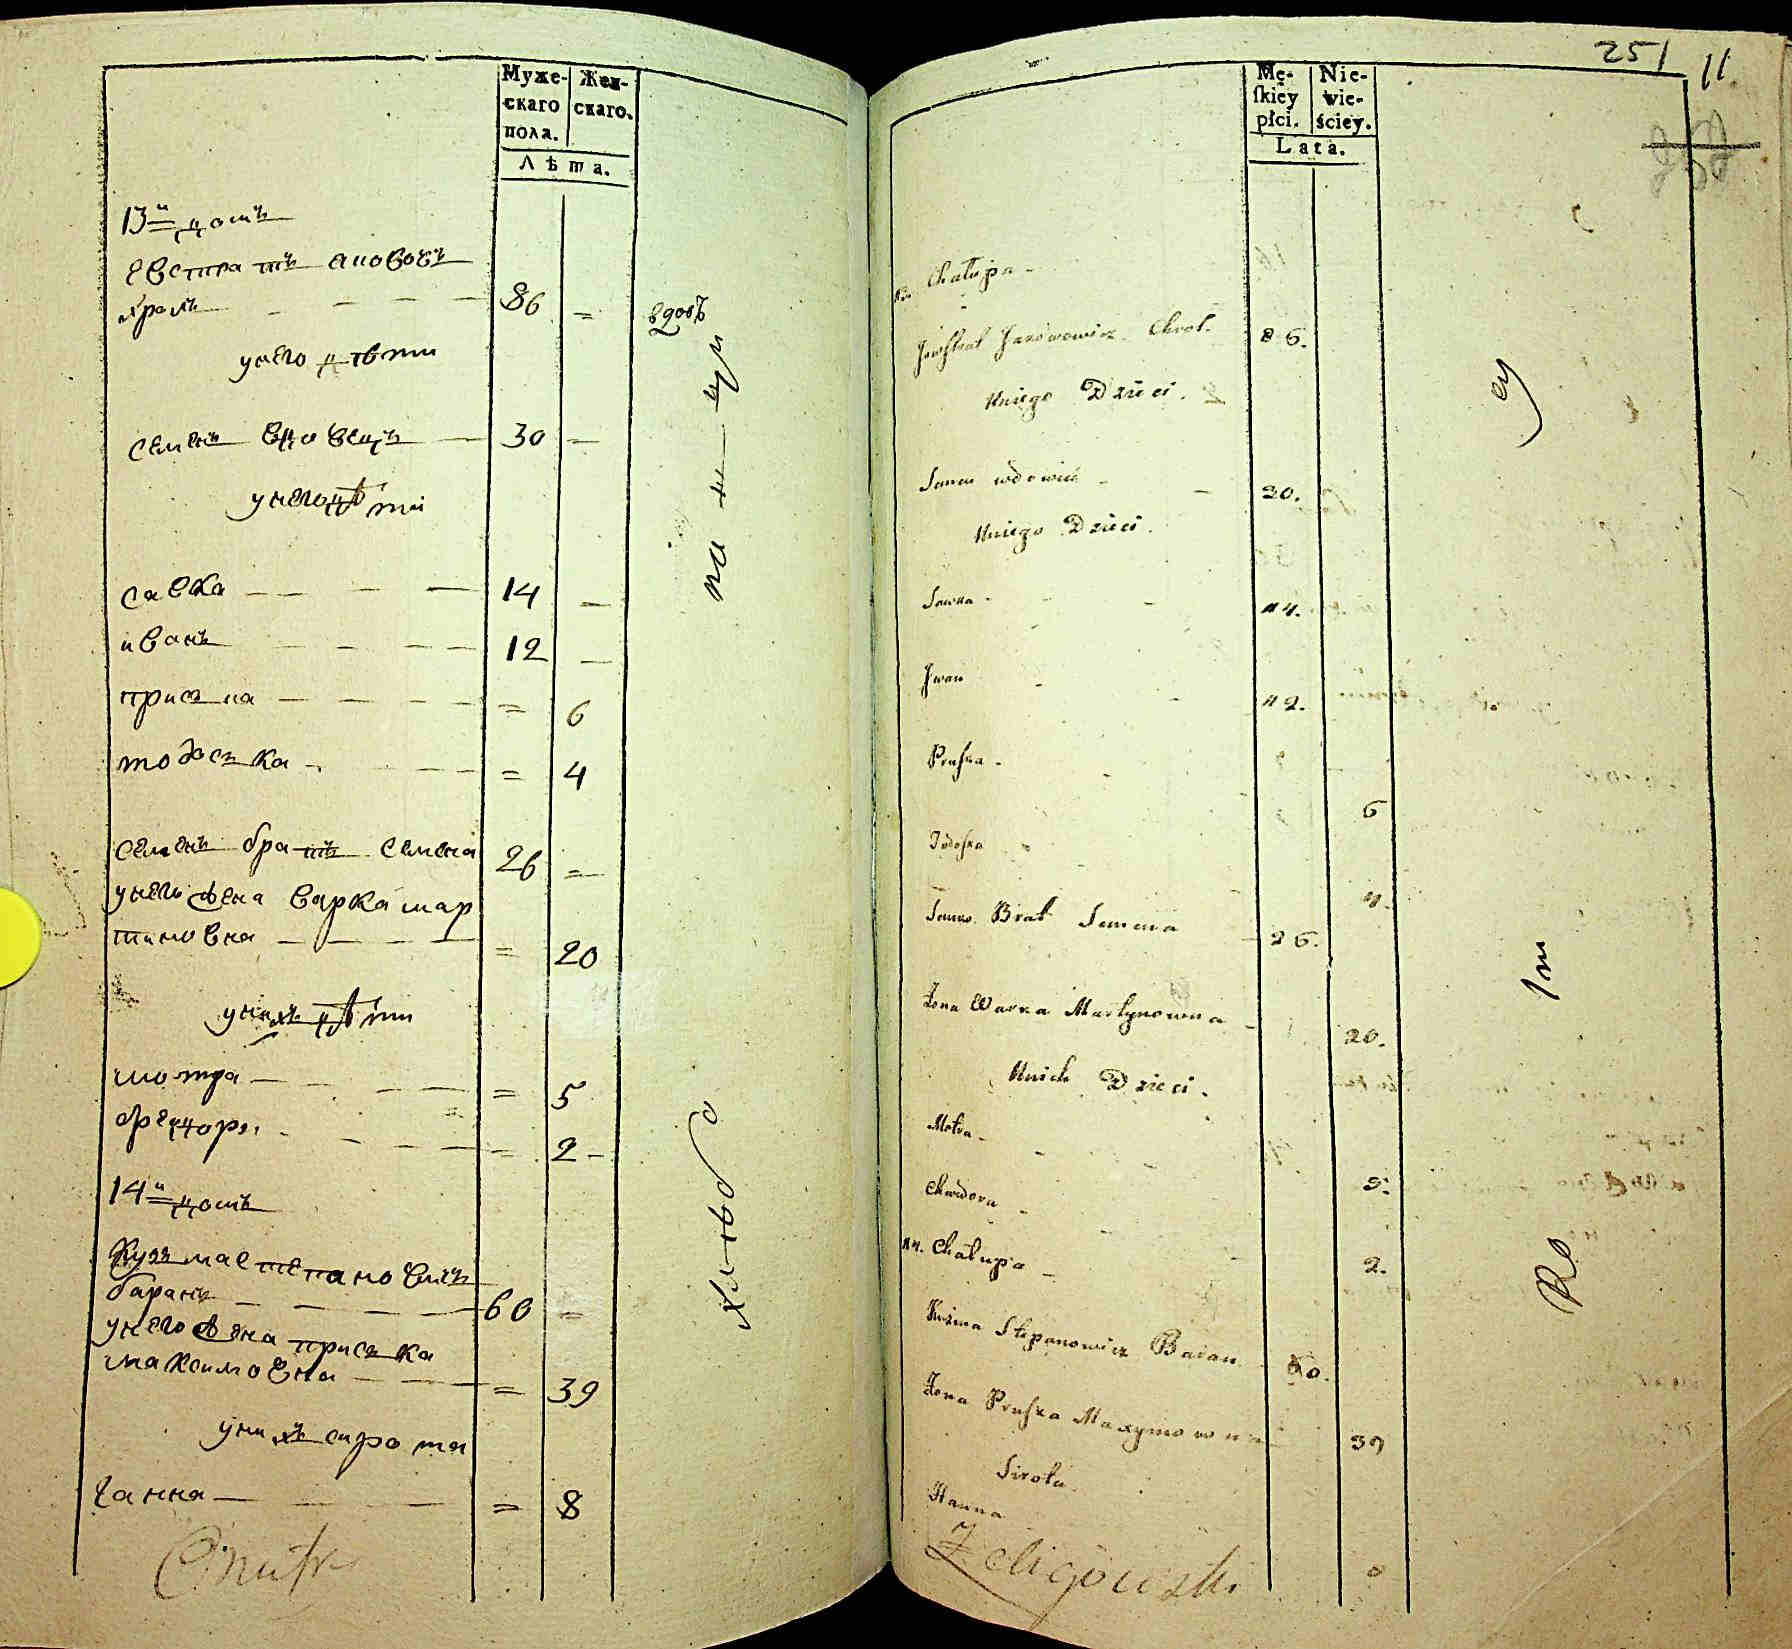 Муже-
скаго
пола.
Жен-
скаго.
Лѣта.
13й домъ
Евстратъ
86 = вдовъ
у него дѣти
Семенъ вдовецъ — 30 =
у него дѣти
савка — — — 14 —
иванъ — — — 12 —
приска — — — = 6
тодоска — — — = 4
семенъ братъ семена 26 =
у него жена варка мар
тиновна — — — = 20
у нихъ дѣти
мотра — — — = 5
= 2 —
14й домъ
Кузма степановичъ
баранъ — — — 60 =
у него жена приска
максимовна — — = 39
у нихъ сирота
ганна — — — = 8
251
11
Mę-
skiey
płci.
Nie-
wie-
ściey.
Lata.
Chałupa -
Chrol. 86.
U niego Dzieci.
wdowiec - - 30.
U niego Dzieci.
Sawka - - - 14.
Jwan - - 12.
Pruska - - 6
Todoska - 4.
Brat Semena - 26.
Żona Warka Martynowna - 20.
U nich Dzieci.
Motra - - - 5.
Chwedora - - - 2.
14. Chałupa -
Kuzma Stepanowicz Baran 60.
Żona Pruska Maxymowna 39
Sirota
Hanna 8
Żeligowski